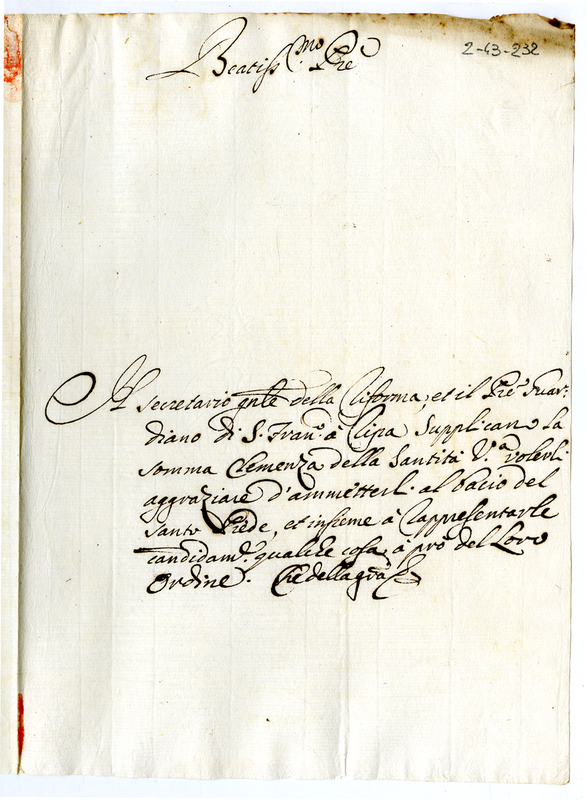 2-43-232
Beatiss.mo Pre
Il secretario gnle della Riforma, et il Pre Guar-
diano di S. Fran.o à Ripa supplicano la
somma Clemenza della Santità V.a volerli
aggraziare d'ammetterli al bacio del
Santo Piede, et insieme à rappresentarle
candidam.e qualche cosa à prò del Loro
Ordine. Che della gra